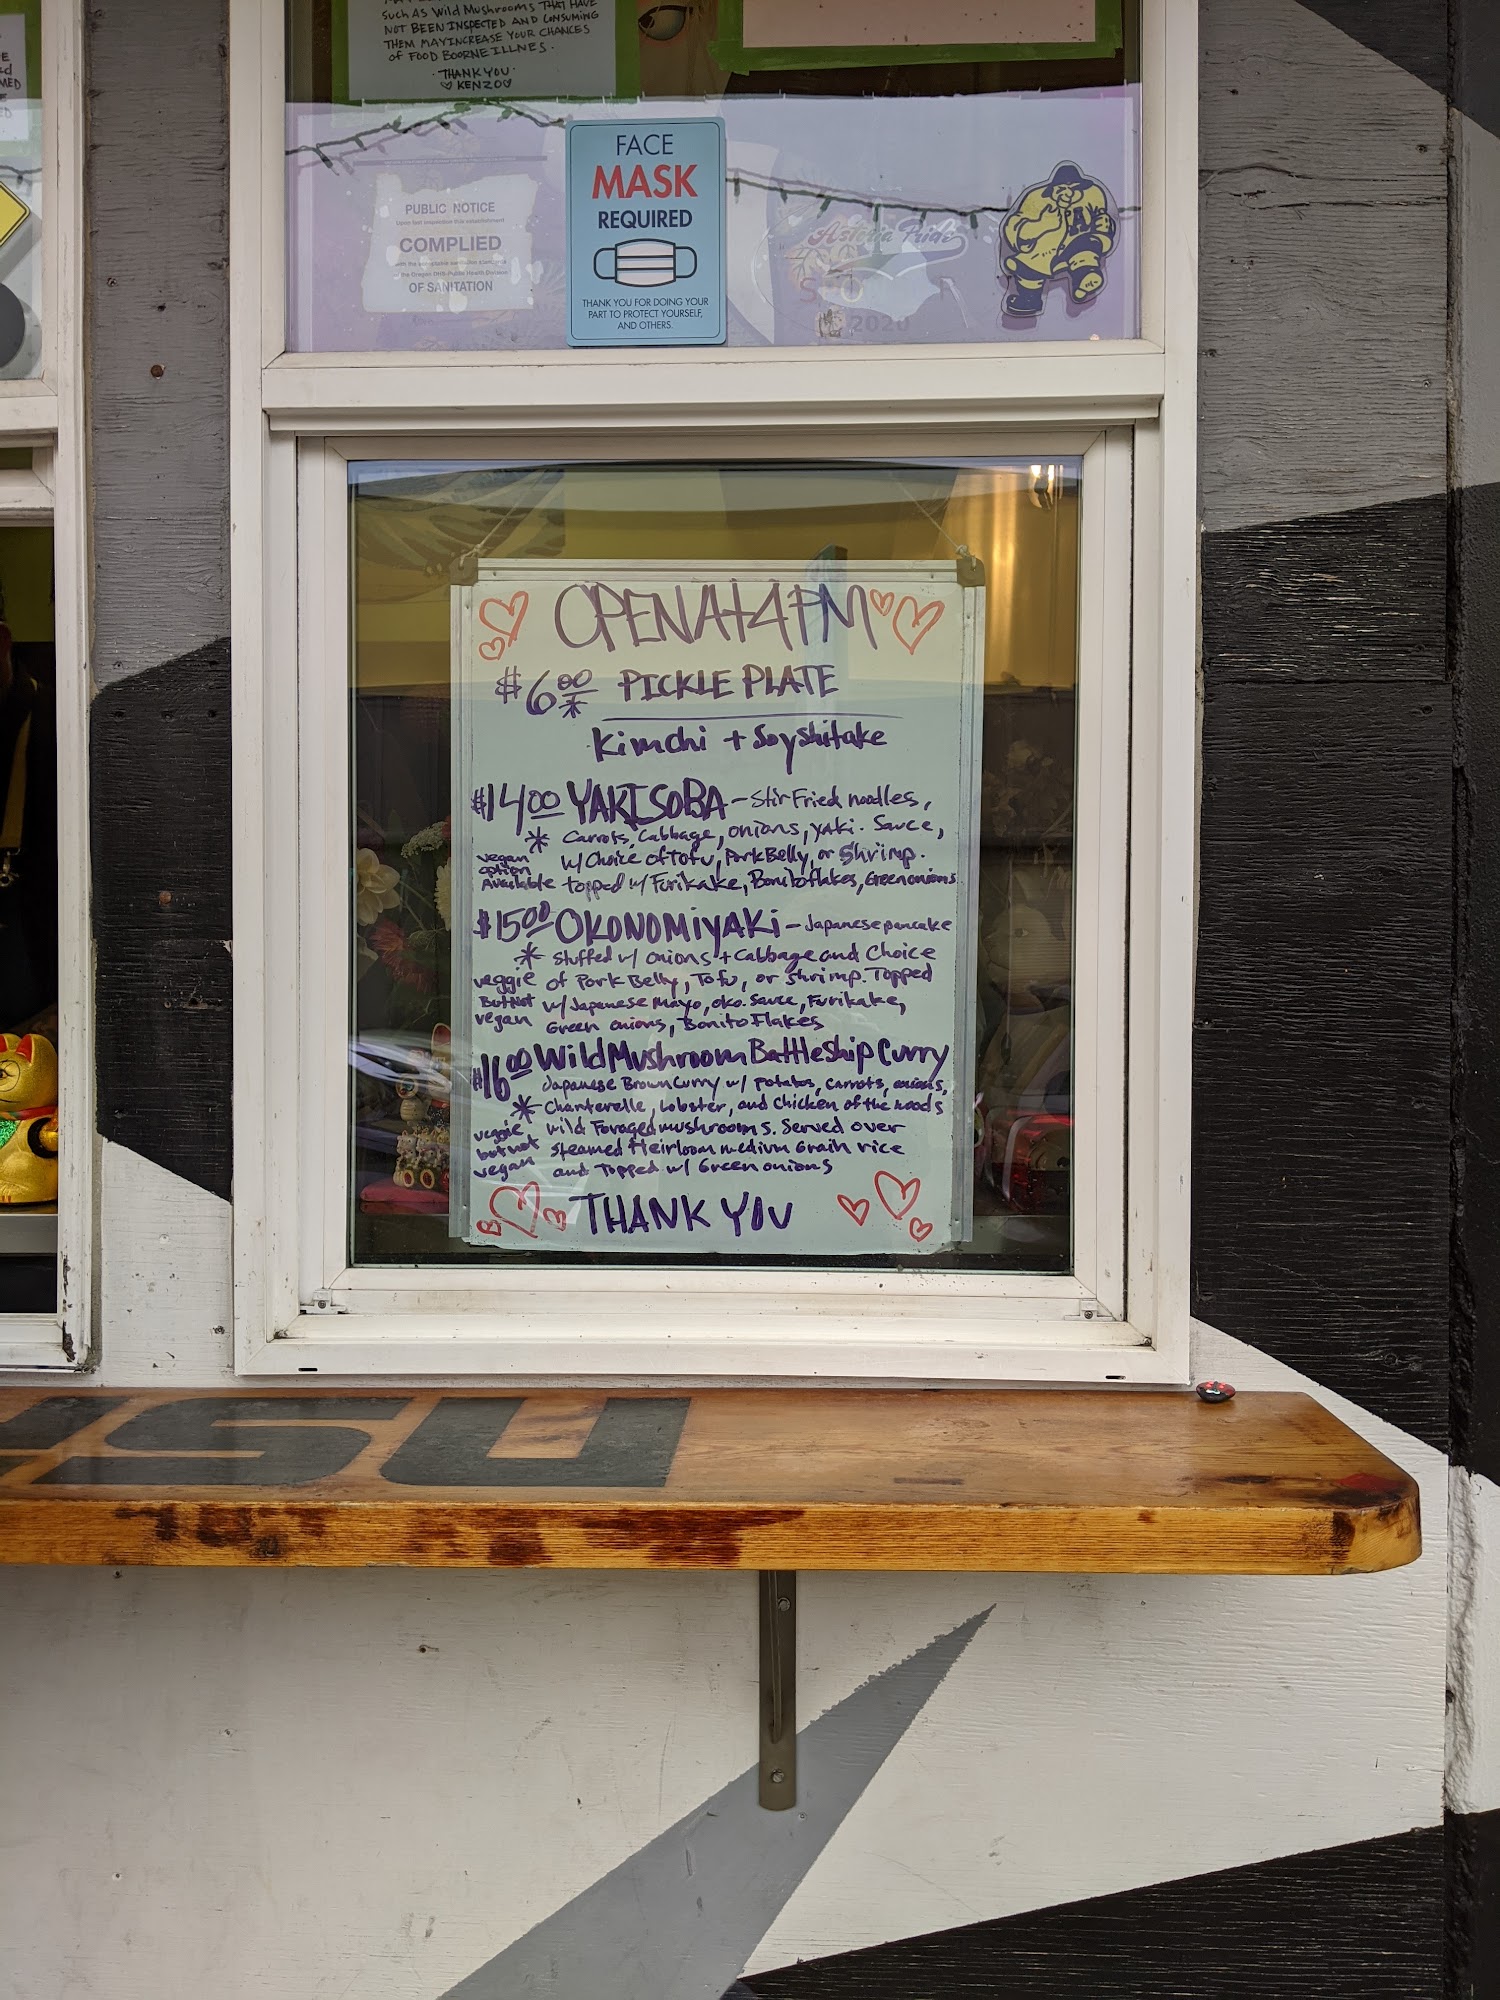 such as Wild Mushrooms THAT HAVE
NOT BEEN INSPECTED AND CONSUMING
THEM MAY INCREASE YOUR CHANCES
OF FOOD BOORNE ILLNES.
·THANK YOU·
♡ KENZO ♡
FACE
MASK
REQUIRED
THANK YOU FOR DOING YOUR
PART TO PROTECT YOURSELF,
AND OTHERS.
PUBLIC NOTICE
COMPLIED
OF SANITATION
Astoria Pride
2020
OPEN At 4PM
$6.00 PICKLE PLATE
*
Kimchi + Soy Shitake
$14.00 YAKISOBA - Stir Fried noodles,
* Carrots, Cabbage, onions, yaki. Sauce,
w/ Choice of Tofu, Pork Belly, or Shrimp.
topped w/ Furikake, Bonito flakes, Green onions
vegan
option
Available
$15.00 OKONOMIYAKI - Japanese pancake
* Stuffed w/ onions + Cabbage and Choice
of Pork Belly, Tofu, or Shrimp. Topped
w/ Japanese Mayo, oko. Sauce, Furikake,
Green onions, Bonito Flakes
veggie
But Not
vegan
$16.00 Wild Mushroom Battleship Curry
Japanese Brown Curry w/ Potatos, Carrots, onions,
* Chanterelle, Lobster, and Chicken of the woods
wild Foraged mushrooms. Served over
Steamed Heirloom medium Grain rice
and Topped w/ Green onions
veggie
but not
vegan
THANK YOU
SU